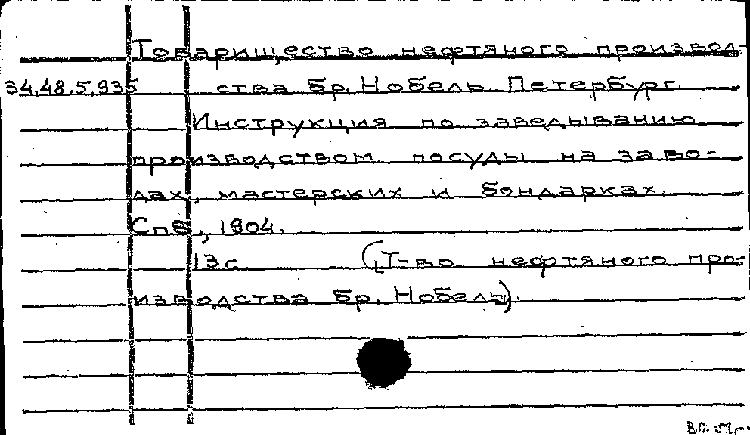 Товарищество нефтяного производ-
34.48.5.935 ства Бр. Нобель. Петербург.
Инструкция по заведыванию
производством посуды на заво-
дах, мастерских и бондарках.
Спб., 1904.
13с. (Т-во нефтяного про-
изводства Бр. Нобель).